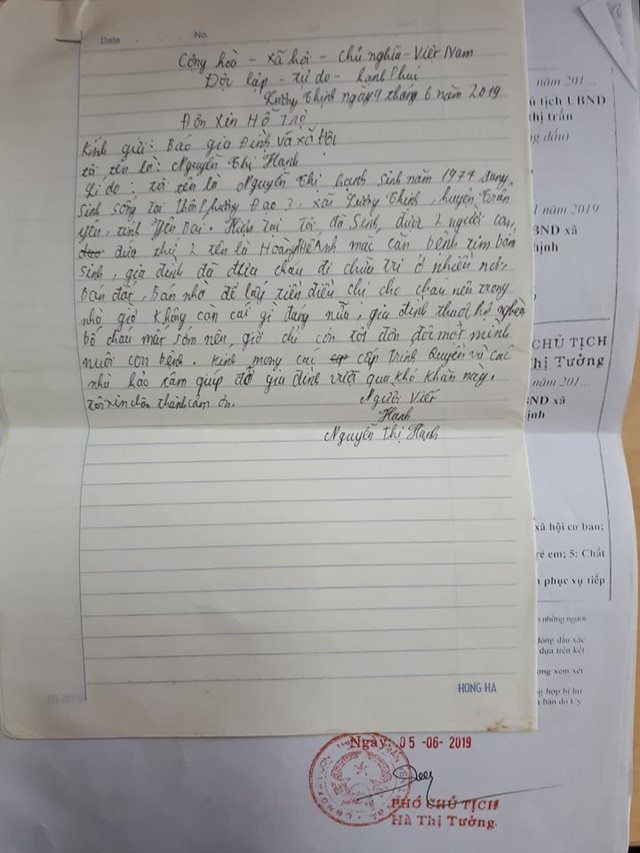 Date
No.
Cộng hoà - xã hội - chủ nghĩa - Việt Nam
Độc lập - tự do - hạnh phúc
Lương Thịnh ngày 4 tháng 6 năm 2019
Đơn Xin Hỗ Trợ
Kính gửi: Báo gia Đình và xã hội
tôi tên là: Nguyễn Thị Hạnh
Lí do: tôi tên là Nguyễn Thị hạnh sinh năm 1974 đang
sinh sống tại thôn phương Đạo 2, xã Lương Thịnh, huyện Trấn
yên, tỉnh yên Bái. Hiện tại tôi đã sinh được 2 người con,
đứa thứ 2 tên là Hoàng Thế Anh mắc căn bệnh tim bẩm
sinh, gia đình đã đưa cháu đi chữa trị ở nhiều nơi,
bán đất, bán nhà để lấy tiền điều chị cho cháu nên trong
nhà giờ không còn cái gì đáng nữa, gia đình thuộc hộ nghèo
bố cháu mất sớm nên, giờ chỉ còn tôi đơn độc một mình
nuôi con bệnh. Kính mong các cấp trính quyền và các
nhà hảo tâm giúp đỡ gia đình vượt qua khó khăn này.
tôi xin chân thành cảm ơn.
Người viết
Hạnh
Nguyễn Thị Hạnh
HONG HA
năm 201...
tịch UBND
thị trấn
dấu)
năm 2019
BND xã
ịnh
CHỦ TỊCH
Hà Thị Tưởng
năm 201...
BND xã
ịnh
xã hội cơ bản;
rẻ em; 5: Chất
phục vụ tiếp
những người
đóng dấu xác
dựa trên kết
ong xem xét
g hợp bị hư
bản do Ủy
Ngày: 05 -06- 2019
PHÓ CHỦ TỊCH
Hà Thị Tưởng